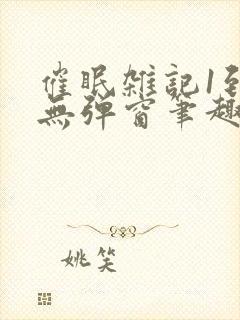 催眠雑記1到
無彈窗筆趣
姚笑